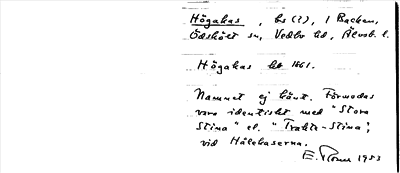 Högakas, hs (?), i Backen,
Ödskölt sn, Vedbo hd, Älvsb. l.
Högakas ht 1861.
Namnet ej känt. Förmodas
vara identiskt med "Stora
Stina" el. "Trakte-Stina",
vid Hålekaserna.
E. 1953